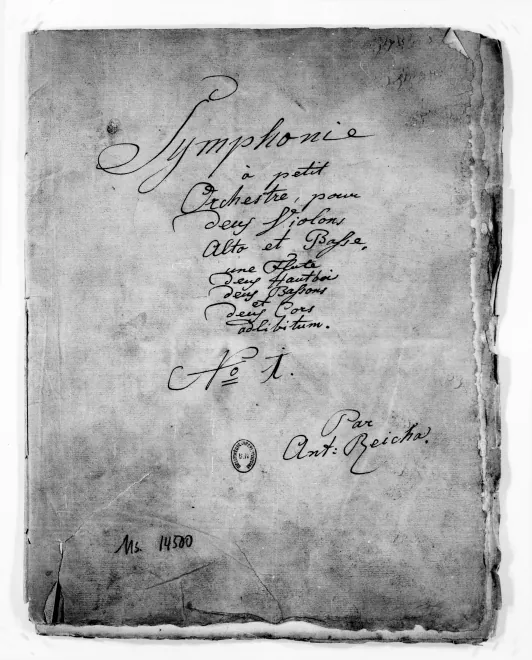 Symphonie
à petit
Orchestre, pour
deux Violons
Alto et Basse,
une Flute
deux Hautbois
deux Bassons
et
deux Cors
adlibitum.
No 1.
Par
Ant: Reicha.
Ms. 14500